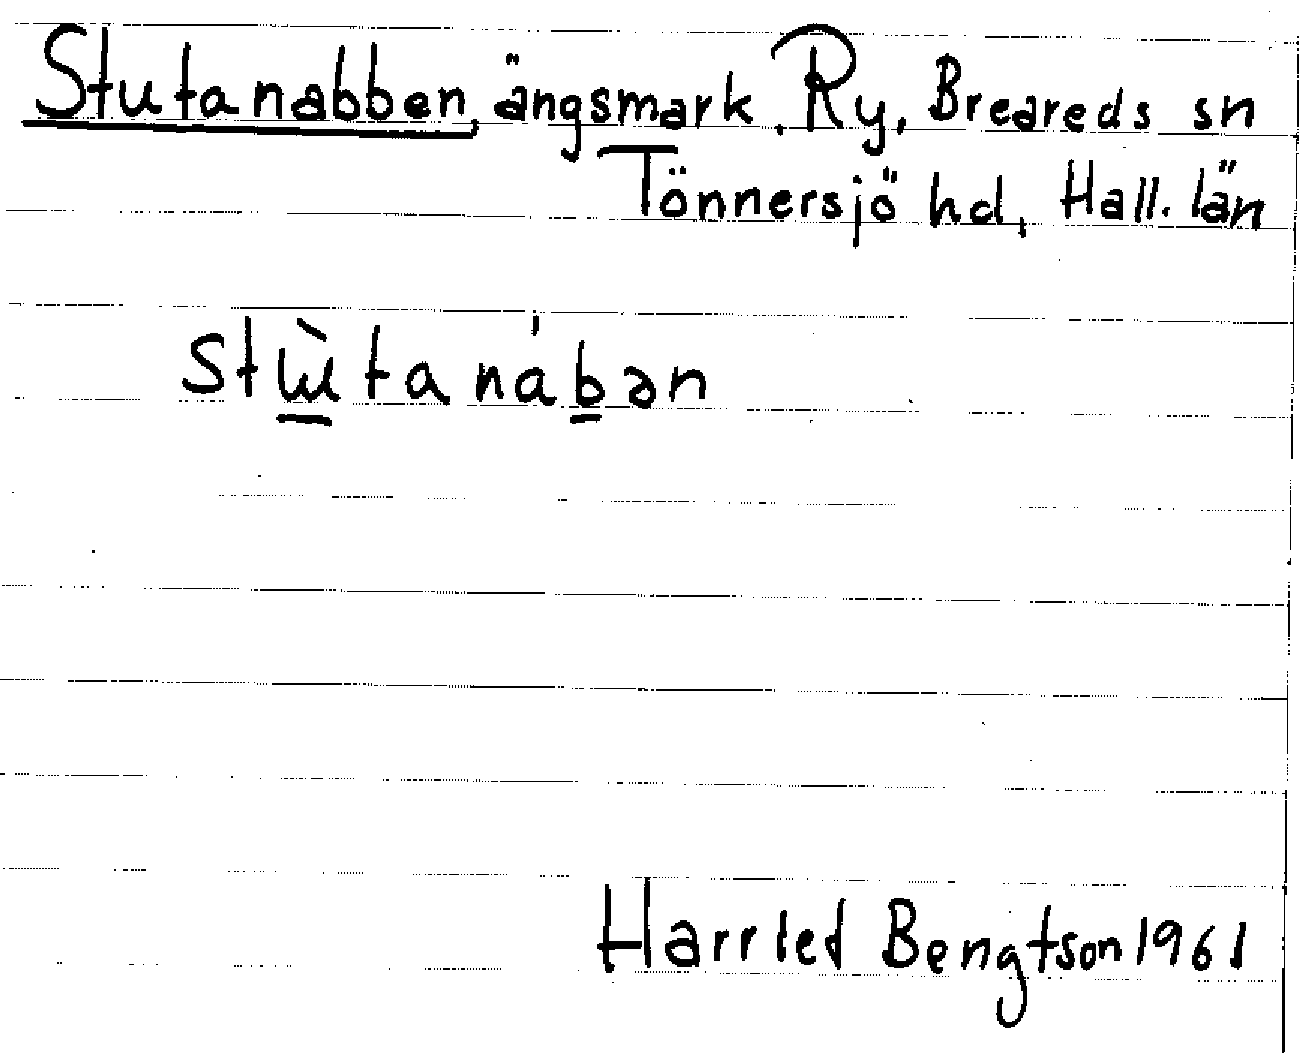 Stutanabben, ängsmark. Ry, Breareds sn
Tönnersjö hd, Hall. län
stɯ̀tanábən
Harriet Bengtson 1961